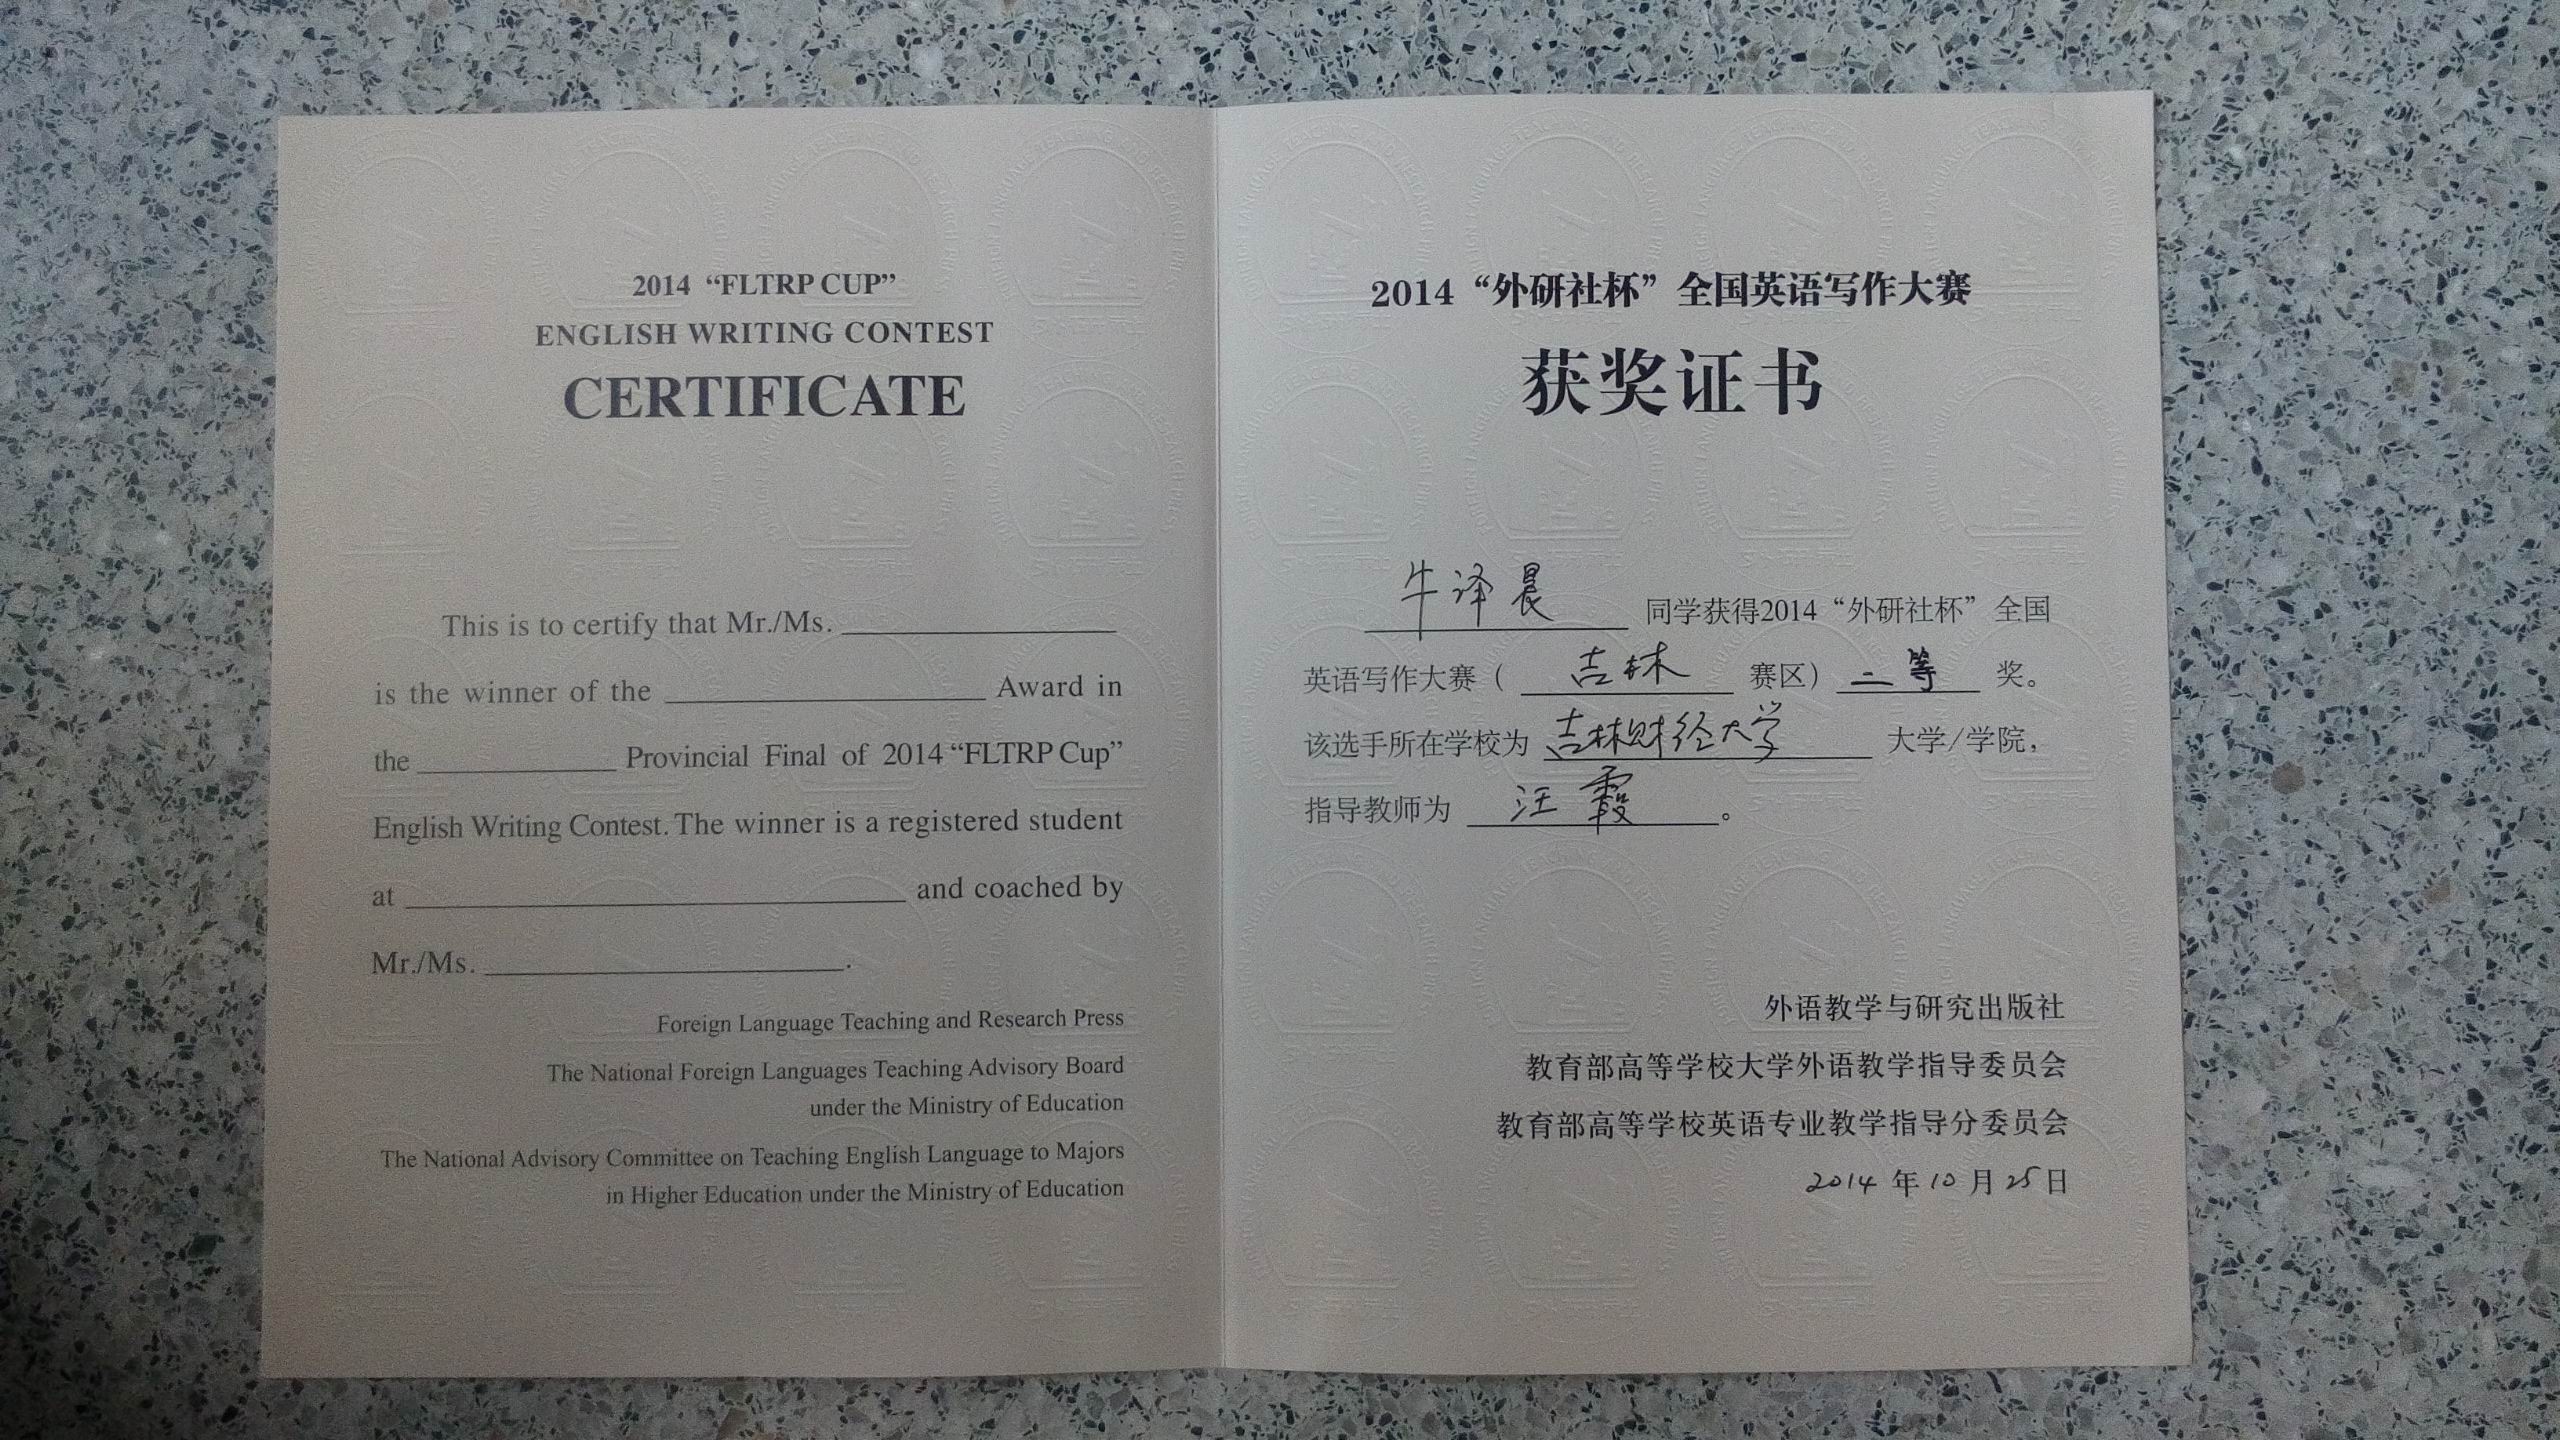 2014 “FLTRP CUP”
ENGLISH WRITING CONTEST
CERTIFICATE
This is to certify that Mr./Ms.
is the winner of the Award in
the Provincial Final of 2014 “FLTRP Cup”
English Writing Contest. The winner is a registered student
at and coached by
Mr./Ms. .
Foreign Language Teaching and Research Press
The National Foreign Languages Teaching Advisory Board
under the Ministry of Education
The National Advisory Committee on Teaching English Language to Majors
in Higher Education under the Ministry of Education
2014 “外研社杯” 全国英语写作大赛
获奖证书
牛译晨 同学获得2014 “外研社杯” 全国
英语写作大赛（ 吉林 赛区） 二等 奖。
该选手所在学校为 吉林财经大学 大学/学院，
指导教师为 汪霞 。
外语教学与研究出版社
教育部高等学校大学外语教学指导委员会
教育部高等学校英语专业教学指导分委员会
2014 年 10 月 25 日